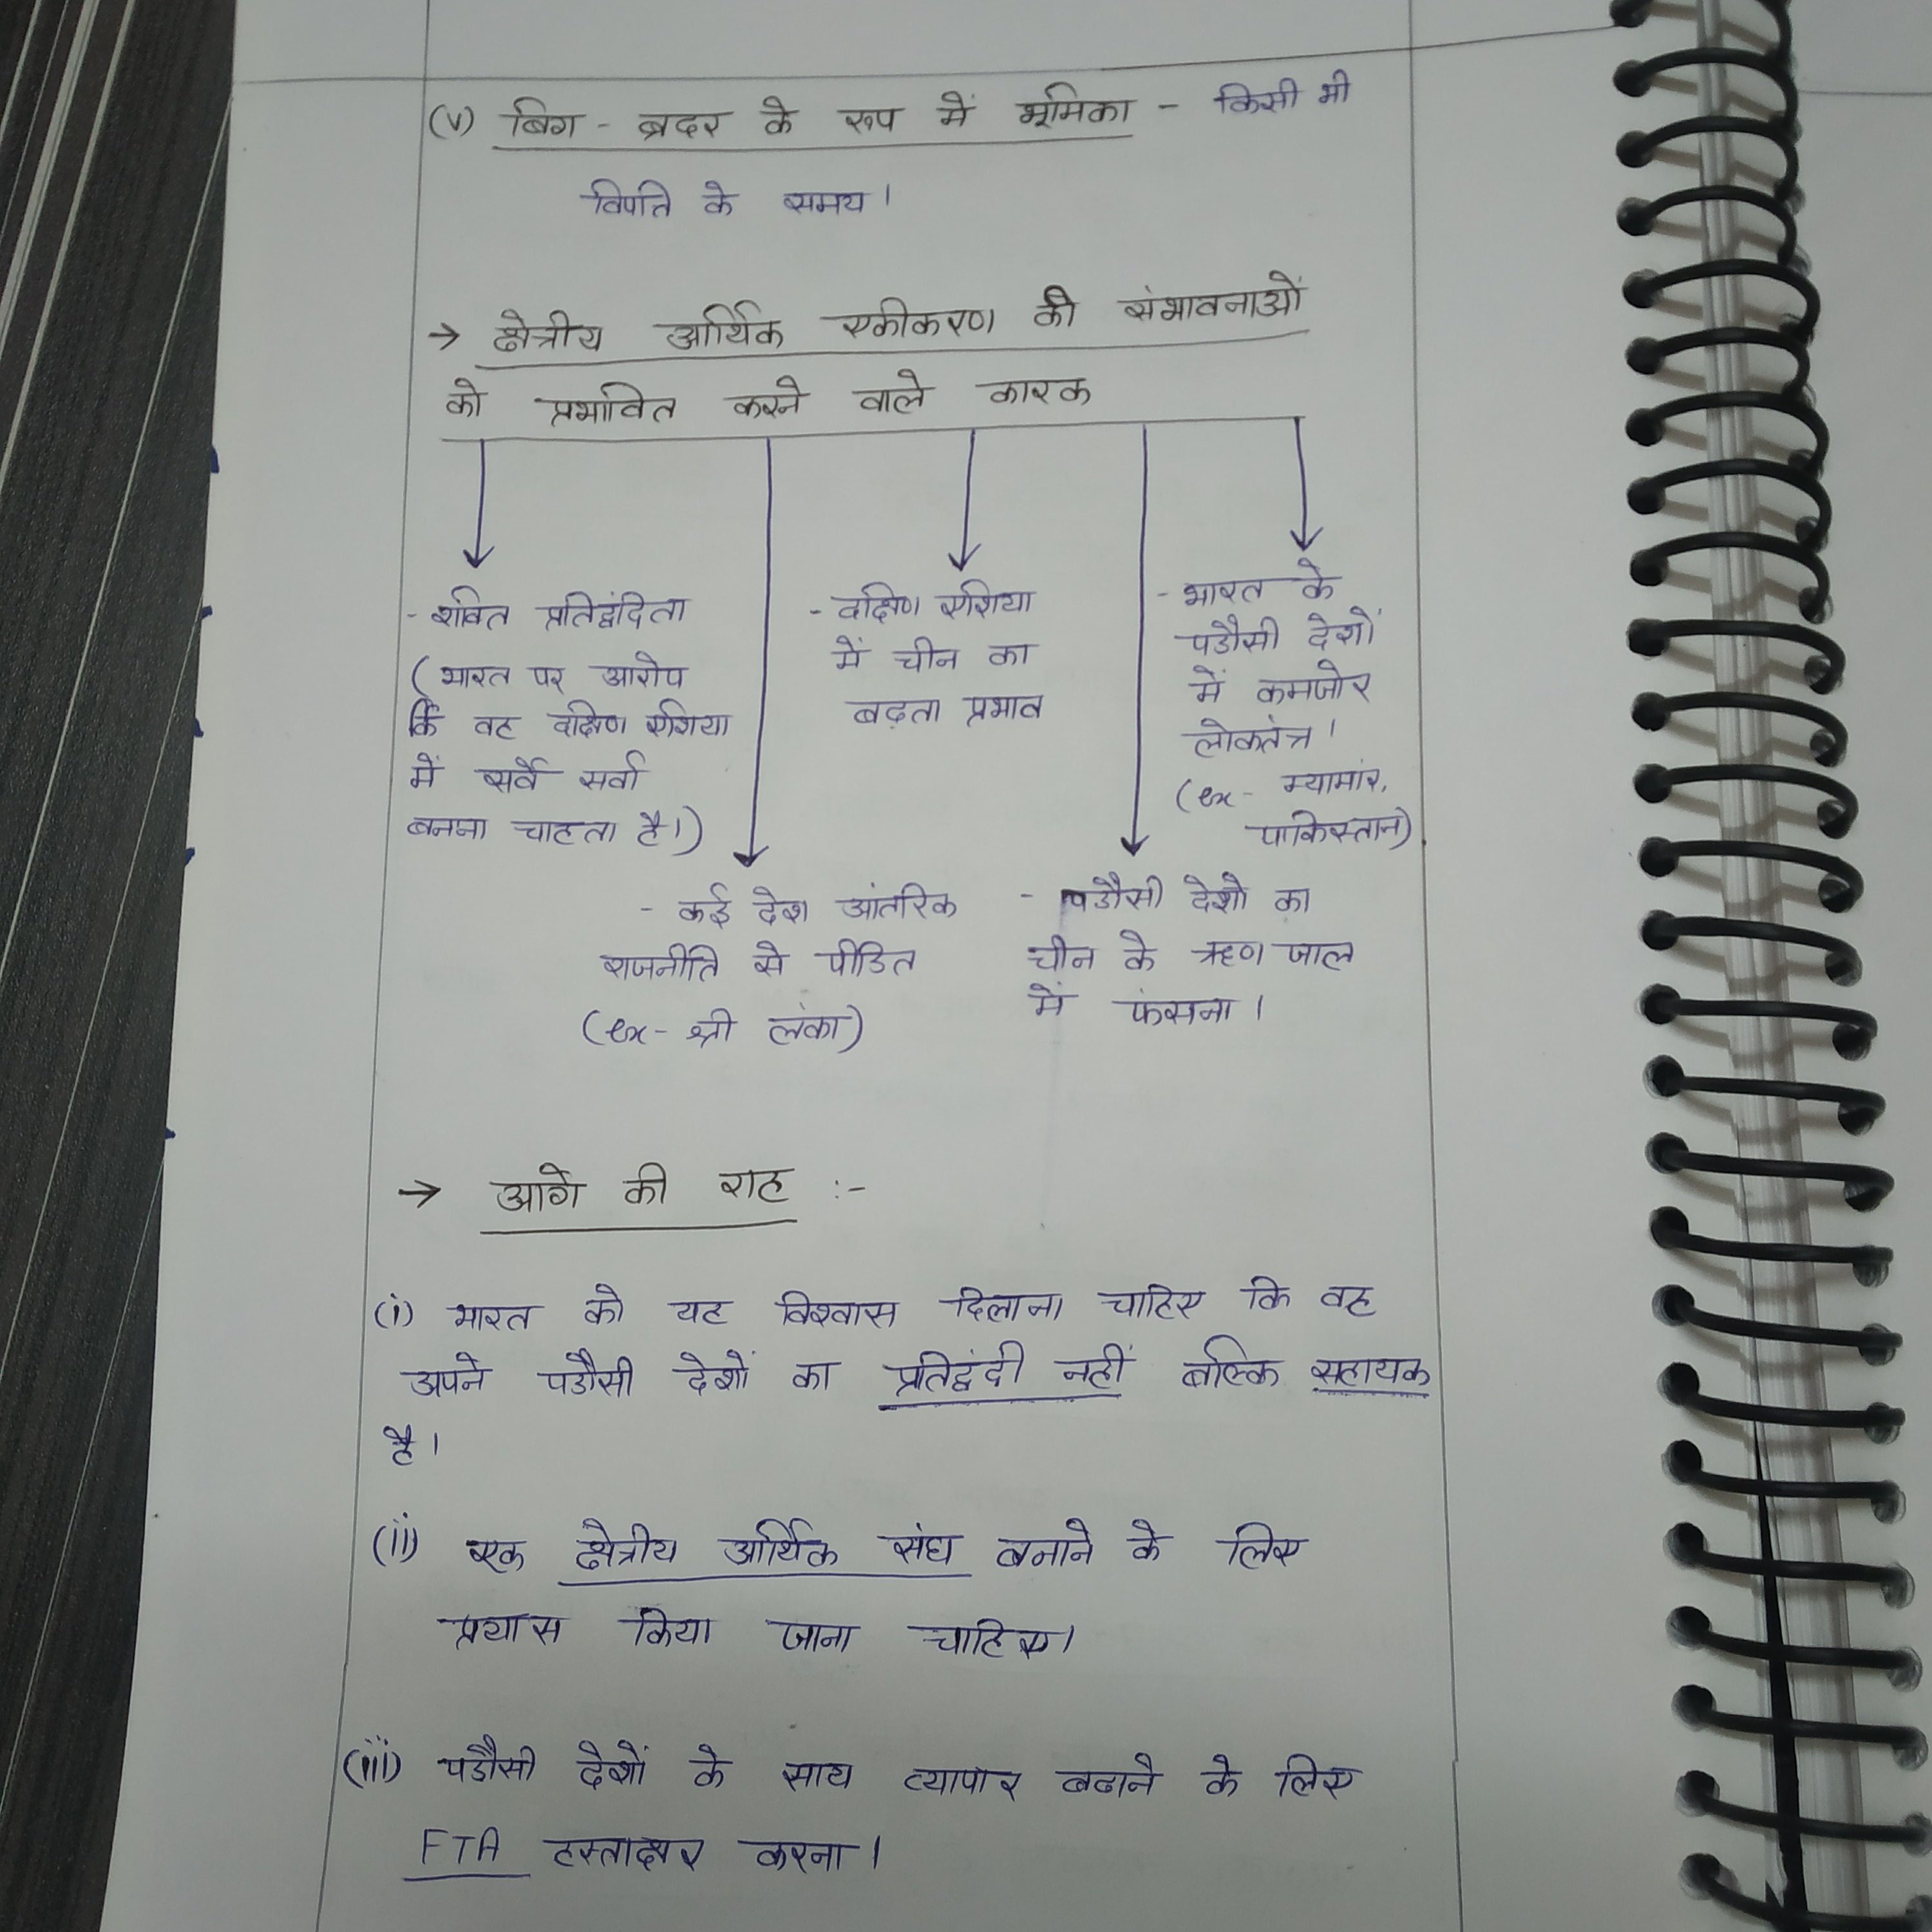 (v) बिग - ब्रदर के रूप में भूमिका - किसी भी
विपत्ति के समय।
→ क्षेत्रीय आर्थिक एकीकरण की संभावनाओं
को प्रभावित करने वाले कारक
- शक्ति प्रतिद्वंदिता
(भारत पर आरोप
कि वह दक्षिण एशिया
में सर्वे सर्वा
बनना चाहता है।)
- कई देश आंतरिक
राजनीति से पीडित
(ex- श्री लंका)
- दक्षिण एशिया
में चीन का
बढ़ता प्रभाव
- पडौसी देशो का
चीन के ऋण जाल
में फंसना।
- भारत के
पडौसी देशों
में कमजोर
लोकतंत्र।
(ex- म्यामांर,
पाकिस्तान)
→ आगे की राह :-
(i) भारत को यह विश्वास दिलाना चाहिए कि वह
अपने पडौसी देशों का प्रतिद्वंदी नहीं बल्कि सहायक
है।
(ii) एक क्षेत्रीय आर्थिक संघ बनाने के लिए
प्रयास किया जाना चाहिए।
(iii) पडौसी देशों के साथ व्यापार बढाने के लिए
FTA हस्ताक्षर करना।